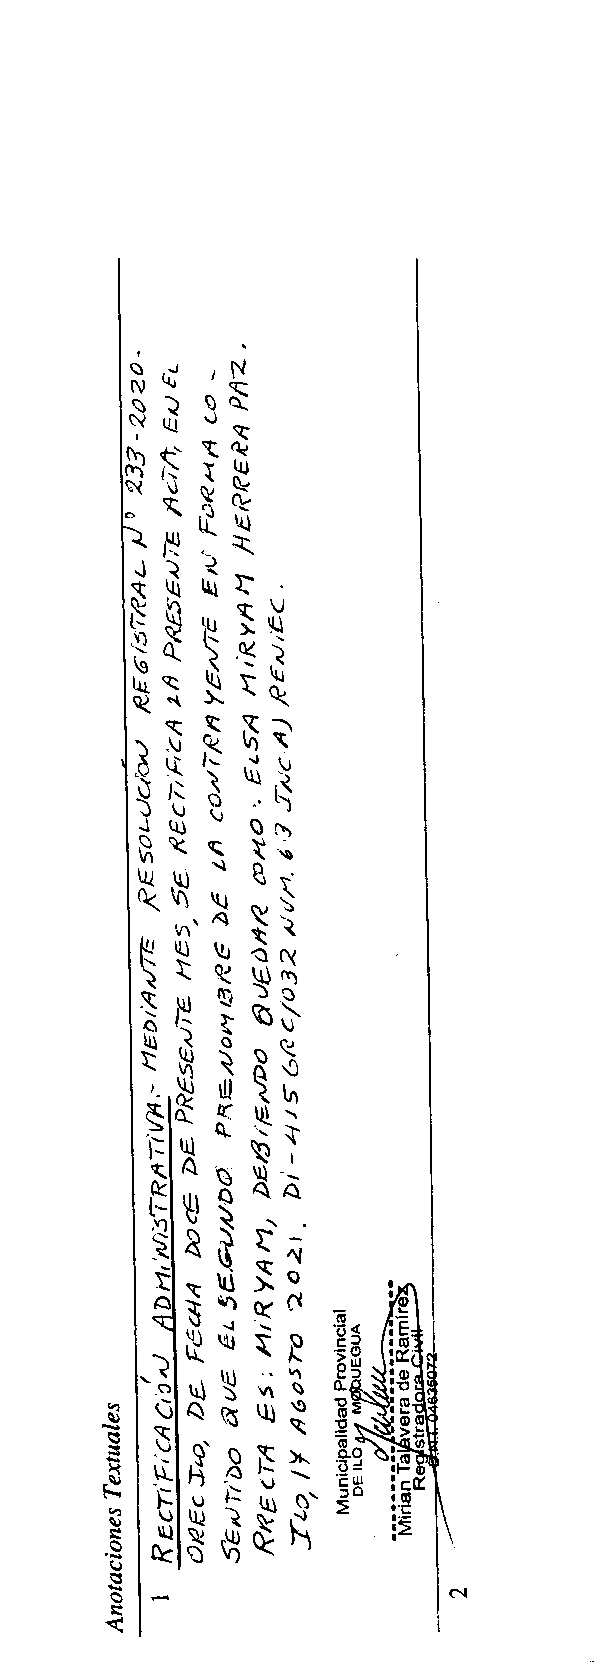 Anotaciones Textuales
1 RECTIFICACIÓN ADMINISTRATIVA.- MEDIANTE RESOLUCIÓN REGISTRAL N° 233-2020-
OREC ILO, DE FECHA DOCE DE PRESENTE MES, SE RECTIFICA LA PRESENTE ACTA, EN EL
SENTIDO QUE EL SEGUNDO PRENOMBRE DE LA CONTRAYENTE EN FORMA CO-
RRECTA ES: MIRYAM, DEBIENDO QUEDAR COMO: ELSA MIRYAM HERRERA PAZ.
ILO, 17 AGOSTO 2021. DI-415 GRC/032 NUM. 6.3 INC A) RENIEC.
Municipalidad Provincial
DE ILO MOQUEGUA
Mirian Talavera de Ramírez
Registradora Civil
D.N.I. 04636072
2